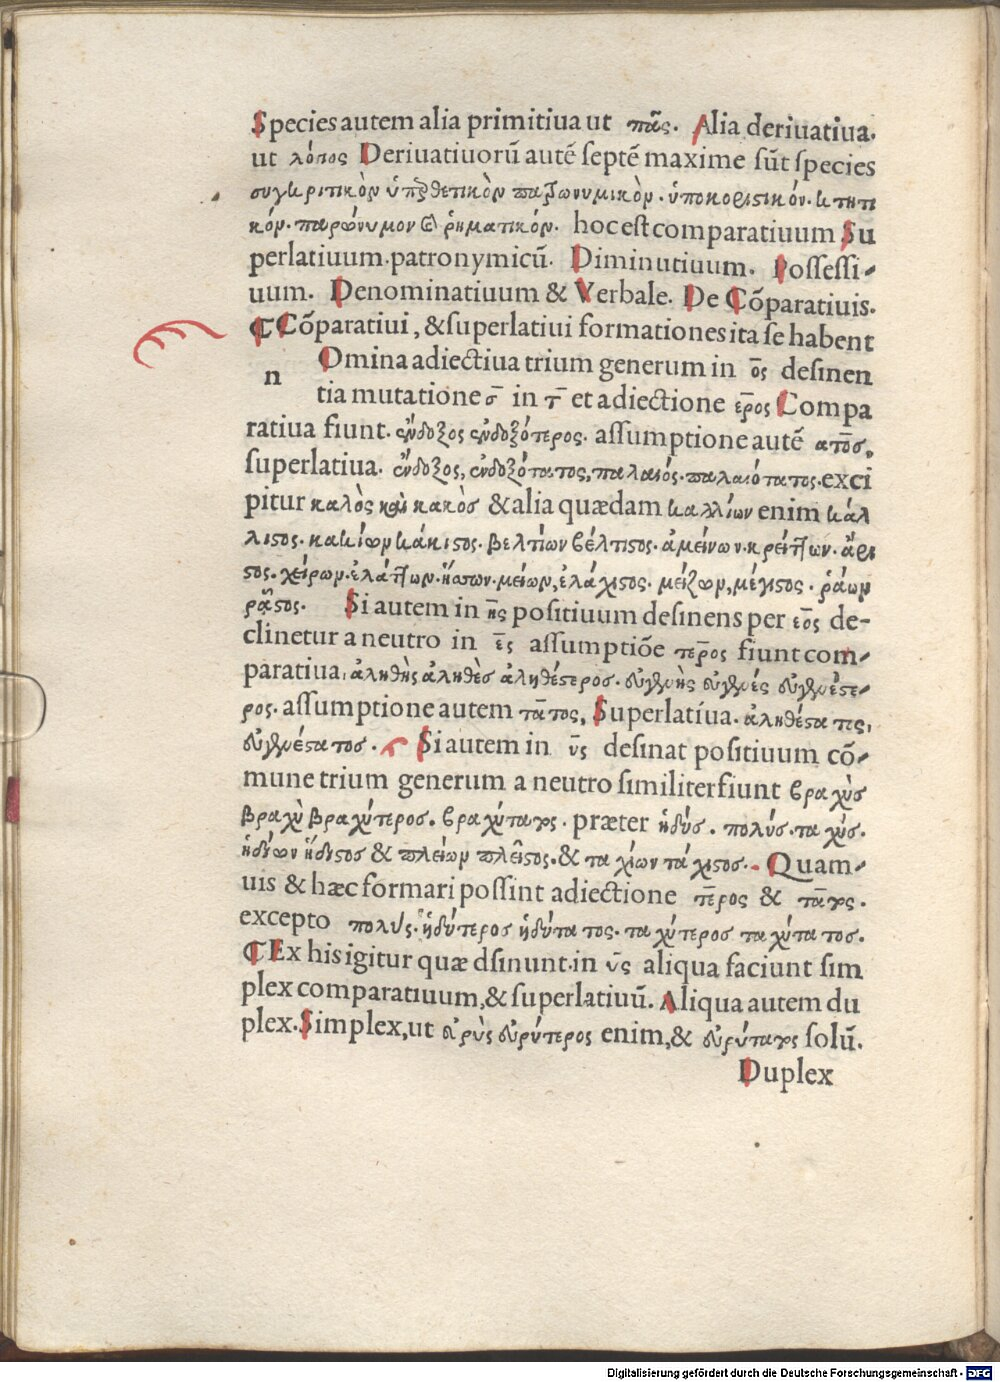 Species autem alia primitiua ut πᾶς. Alia deriuatiua.
ut λόπος Deriuatiuorū autē septē maxime sūt species
συγκριτικὸν ὑπερθετικὸν πατρωνυμικὸν. ὑποκοριστικόν. κτητι
κόν. παρώνυμον & ῥηματικόν. hoc est comparatiuum Su
perlatiuum. patronymicū. Diminutiuum. Possessi-
uum. Denominatiuum & Verbale. De Cōparatiuis.
¶ Cōparatiui, & superlatiui formationes ita se habent
n Omina adiectiua trium generum in ος desinen
tia mutatione σ in τ et adiectione ερος Compa
ratiua fiunt. ἔνδοξος ἐνδοξότερος. assumptione autē ατοσ.
superlatiua. ἔνδοξος, ἐνδοξότατος, παλαιός. παλαιότατος. exci
pitur καλὸς καὶ κακὸσ & alia quædam καλλίων enim κάλ
λιστος. κακίων κάκιστος. βελτίων βέλτιστος. ἀμείνων. κρείττων. ἄρι
στος. χείρων. ἐλάττων. ἥσσων. μείων, ἐλάχιστος. μείζων, μέγιστος. ῥάων
ρᾷστος. Si autem in ης positiuum desinens per εος de-
clinetur a neutro in ες assumptiōe τερος fiunt com-
paratiua, ἀληθὴς ἀληθὲσ ἀληθέστερος. εὐγενὴς εὐγενές εὐγενέστε-
ρος. assumptione autem τατος, Superlatíua. ἀληθέστατος,
εὐγενέστατος. Si autem in υς desinat positiuum cō-
mune trium generum a neutro similiter fiunt βραχὺσ
βραχὺ βραχύτεροσ. βραχύτατος. præter ἡδύς. πολύσ. ταχύς.
ἡδίων ἥδιστος & πλείων πλεῖστος. & ταχίων τάχιστος. Quam-
uis & hæc formari possint adiectione τερος & τατος.
excepto πολύς. ἡδύτερος ἡδύτατος. ταχύτερος ταχύτατοσ.
¶ Ex his igitur quæ dsinunt in υς aliqua faciunt sim
plex comparatiuum, & superlatiuū. Aliqua autem du
plex. Simplex, ut εὐρὺς εὐρύτερος enim, & εὐρύτατος solū.
Duplex
Digitalisierung gefördert durch die Deutsche Forschungsgemeinschaft - DFG